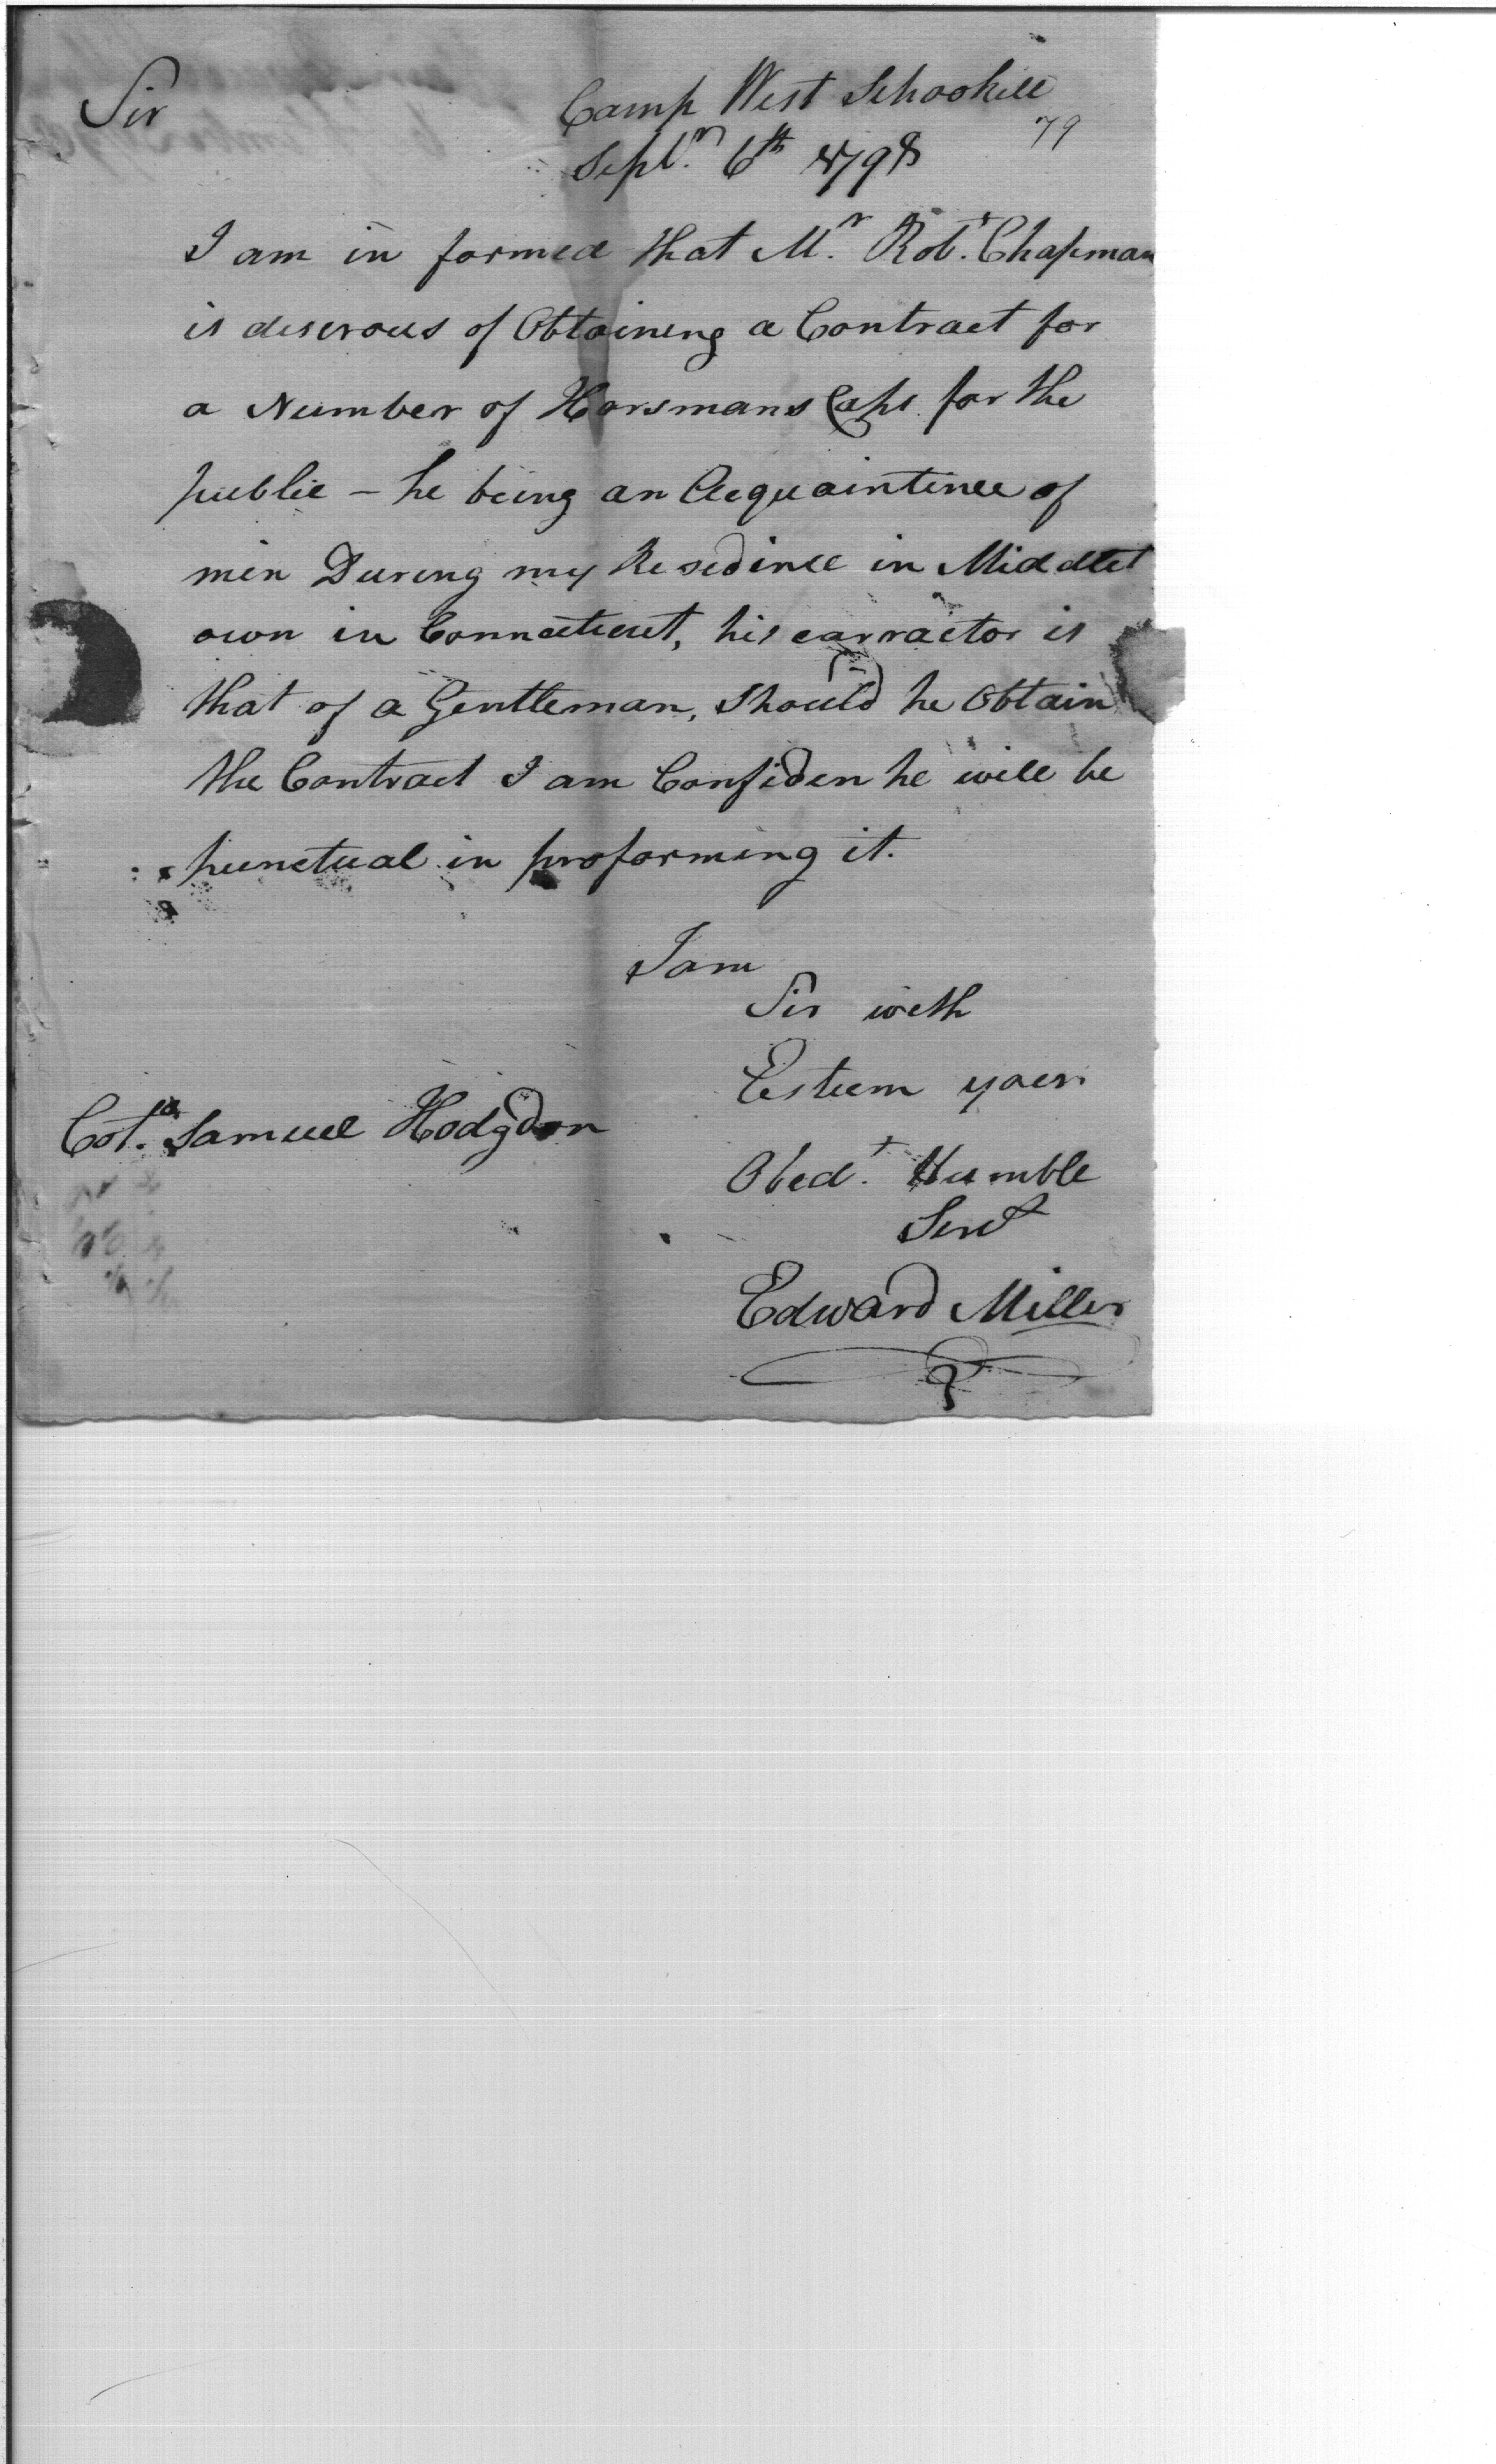 Sir
Camp West Schoolkill
79
Sept.r 6th 1798
I am in formed that Mr. Robt. Chapman
is diserous of Obtaineng a Contract for
a Number of Horsmans Caps for the
public – he being an Acquaintince of
min Dureng my Resedince in Middlet
own in Connecticut, his carractor is
that of a Gentleman, Should he Obtain
the Contract I am Confiden he will be
punctual in proforming it.
I am
Sir with
Esteem your
Obedt. Humble
Servt
Col.o Samuel Hodgdon
Edward Miller